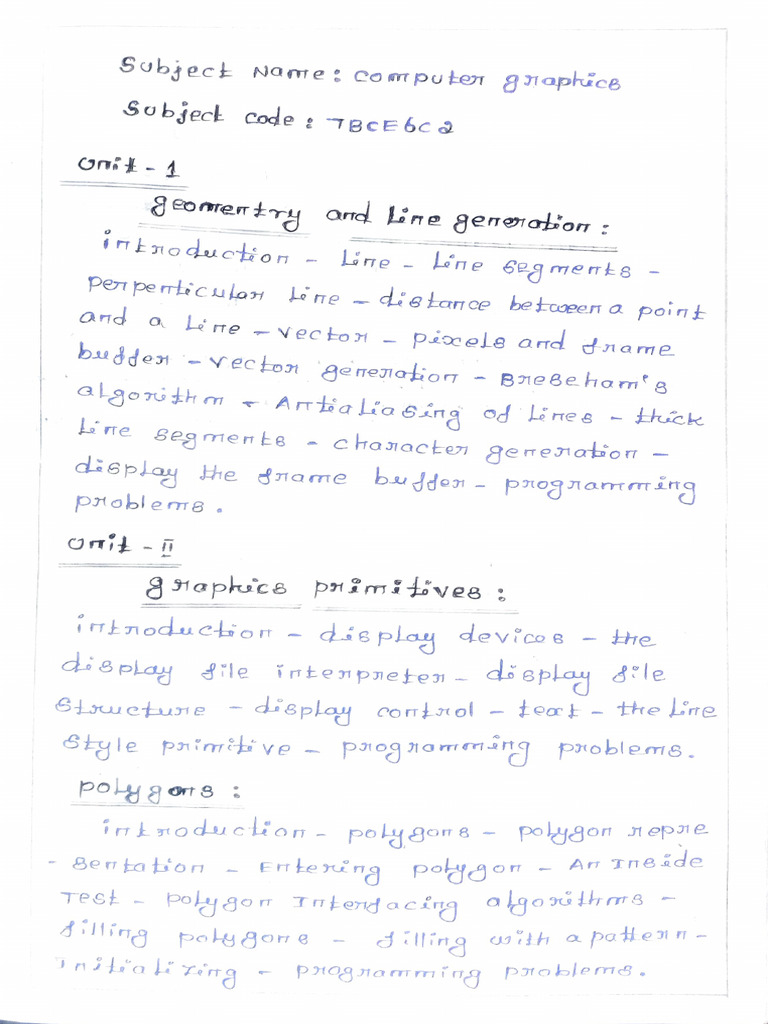 Subject Name: computer graphics
Subject code: 7BCE6C2
Unit - 1
geomentry and Line generation:
introduction - Line - Line segments -
perpenticular Line - distance between a point
and a Line - vector - pixels and frame
buffer - vector generation - Breseham's
algorithm - Antialiasing of Lines - thick
Line segments - character generation -
display the frame buffer - programming
problems.
Unit - II
graphics primitives:
introduction - display devices - the
display file interpreter - display file
structure - display control - text - the Line
style primitive - programming problems.
polygons:
introduction - polygons - polygon repre
- sentation - Entering polygon - An Inside
Test - polygon Interfacing algorithms -
filling polygons - filling with a pattern -
initializing - programming problems.